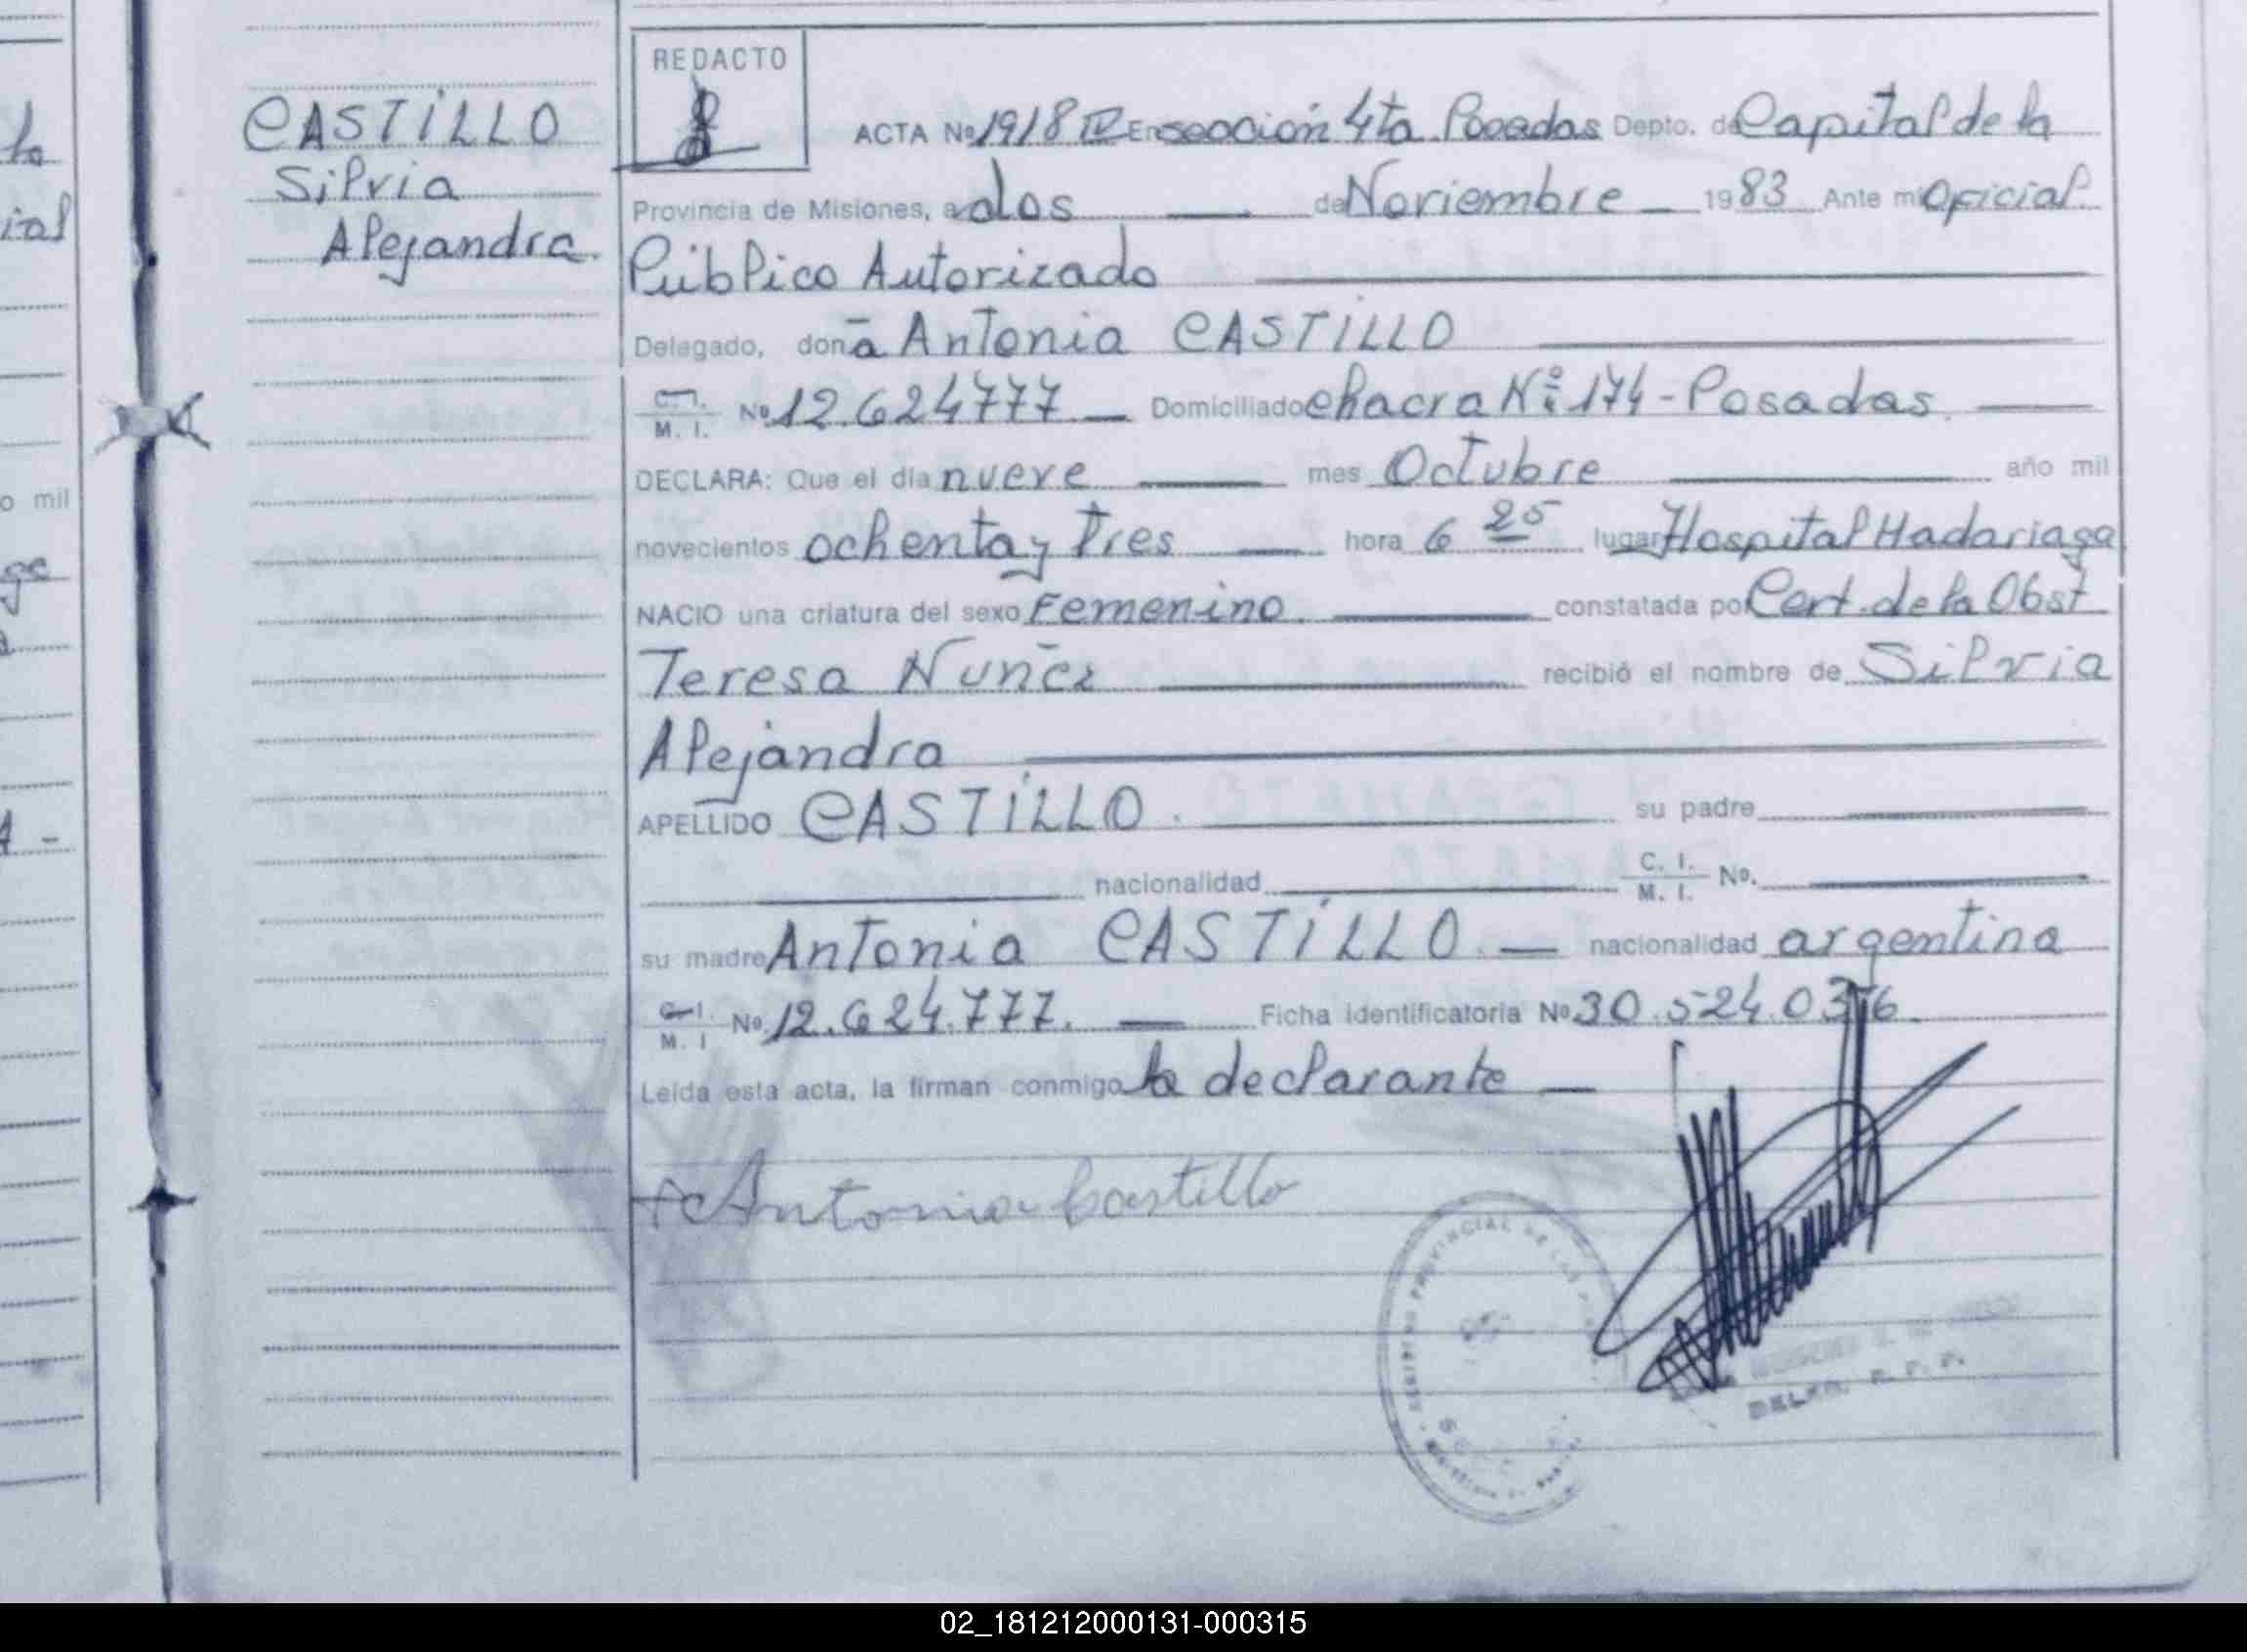 CASTILLO
Silvia
Alejandra.
REDACTO
ACTA Nº 1918 IV En sección 4ta. Posadas Depto. de Capital de la
Provincia de Misiones, a dos de Noviembre 1983 Ante mi Oficial
Público Autorizado
Delegado, doña Antonia CASTILLO
C. I. M. I. Nº 12.624777 Domiciliado chacra Nº 174 - Posadas.
DECLARA: Que el día nueve mes Octubre año mil
novecientos ochenta y tres hora 6 25 lugar Hospital Madariaga
NACIO una criatura del sexo Femenino. constatada por Cert. de la Obst
Teresa Nuñez recibió el nombre de Silvia
Alejandra
APELLIDO CASTILLO. su padre
nacionalidad C. I. M. I. No.
su madre Antonia CASTILLO. nacionalidad argentina
C. I. M. I Nº 12.624.777. Ficha identificatoria Nº 30.524.036.
Leída esta acta, la firman conmigo la declarante
Antonia Castillo
DELEG. R. P. P.
o mil
02_181212000131-000315